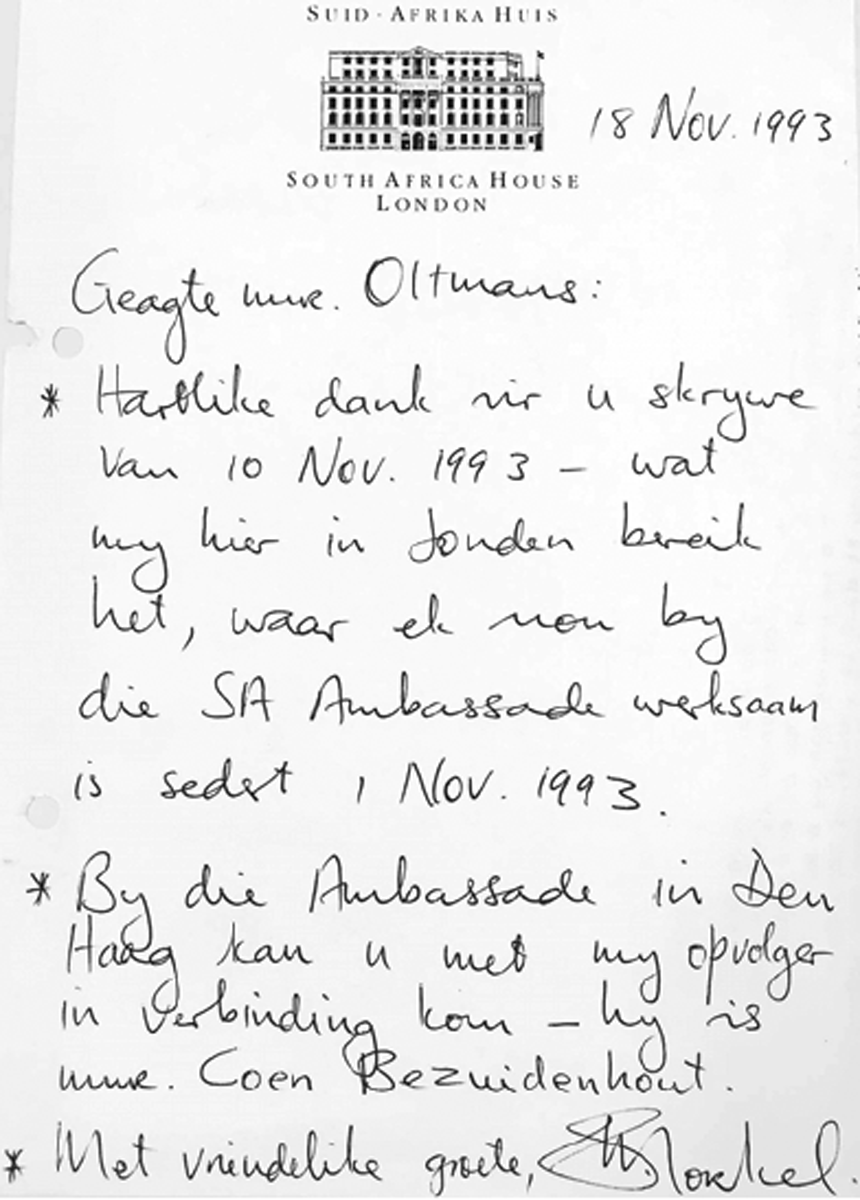 SUID-AFRIKA HUIS
18 Nov. 1993
SOUTH AFRICA HOUSE
LONDON
Geagte mnr. Oltmans:
* Hartlike dank vir u skrywe
van 10 Nov. 1993 – wat
my hier in Londen bereik
het, waar ek nou by
die SA Ambassade werksaam
is sedert 1 Nov. 1993.
* By die Ambassade in Den
Haag kan u met my opvolger
in verbinding kom – hy is
mnr. Coen Bezuidenhout.
* Met vriendelike groete,